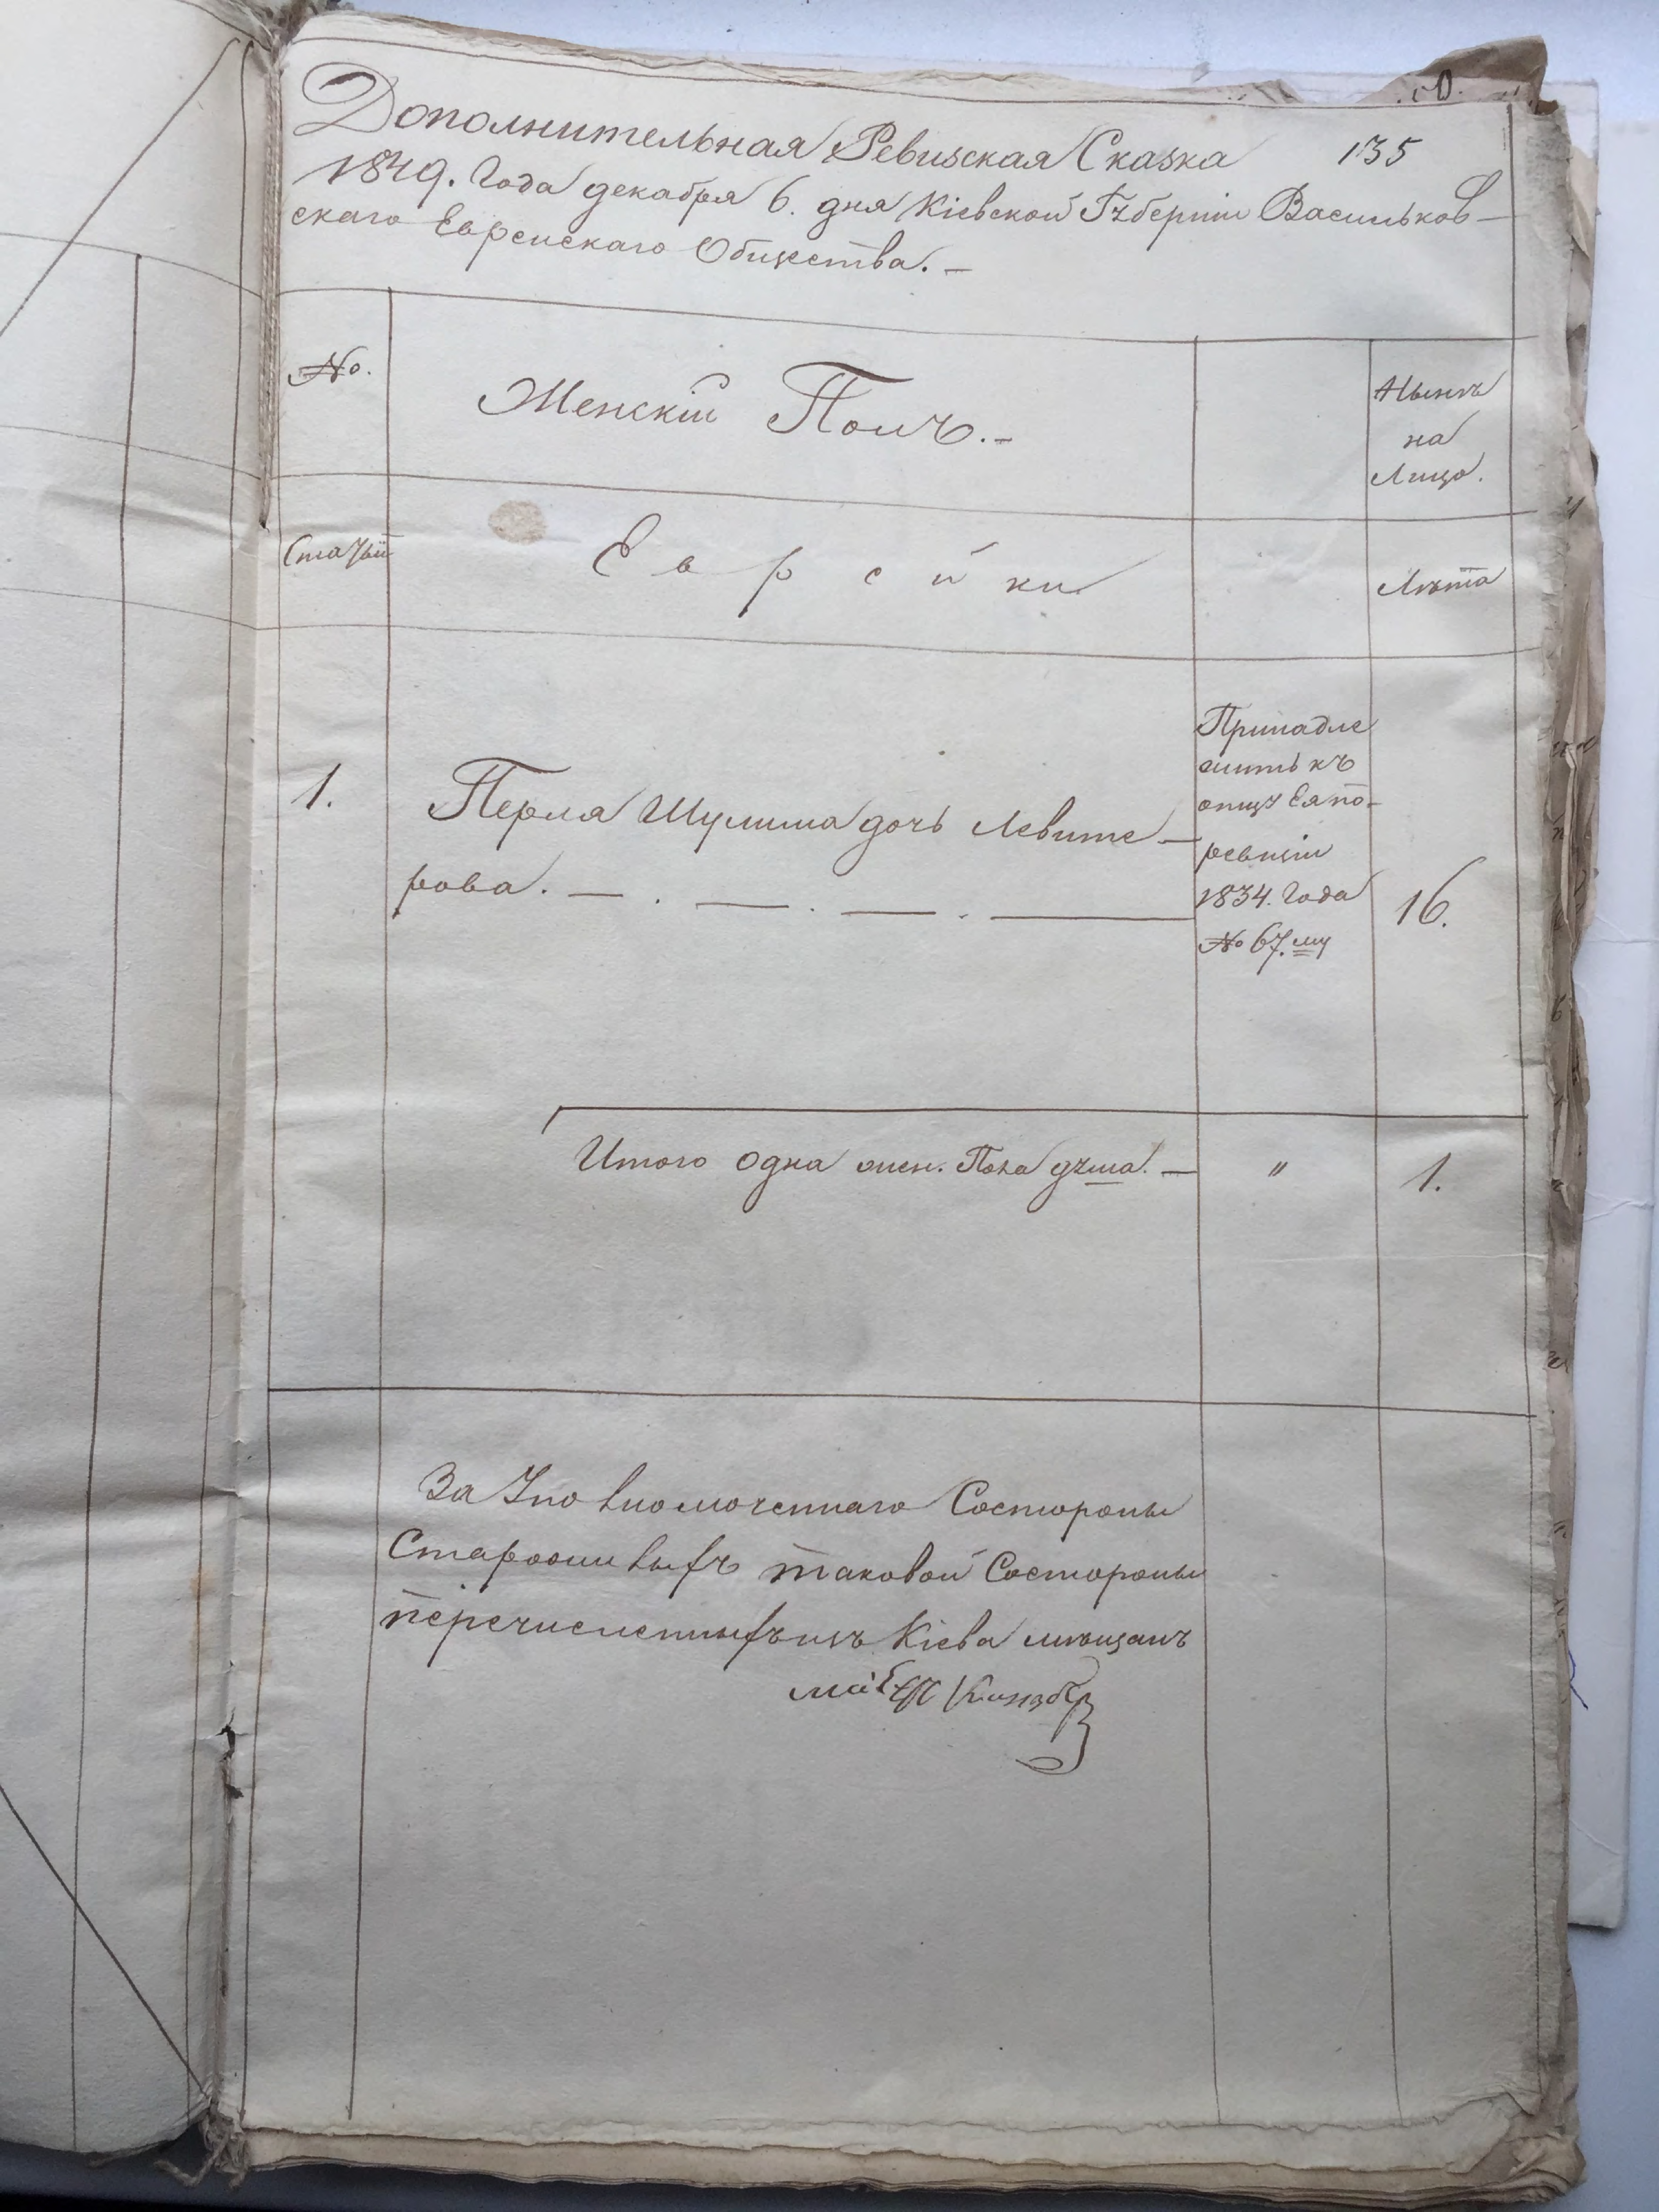 135
Дополнительная Ревизская Сказка
1849. Года декабря 6. дня Кіевской Губерніи Васильков-
скаго Еврейскаго Общества. —
№.
Женскій Полъ. —
Нынѣ
на
Лицо.
Статьи
Еврейки
Лѣта
1.
Перля Шулима дочь Левите-
рова. — . — . — . —
Принадле
житъ къ
отцу Ея по-
ревизіи
1834. Года
№ 67.му
16.
Итого одна жен. Пола душа. —
"
1.
За Уповномоченнаго Состороны
Староживыхъ таковой Состороны
перечисленныхъ изъ Кіева мѣщанъ